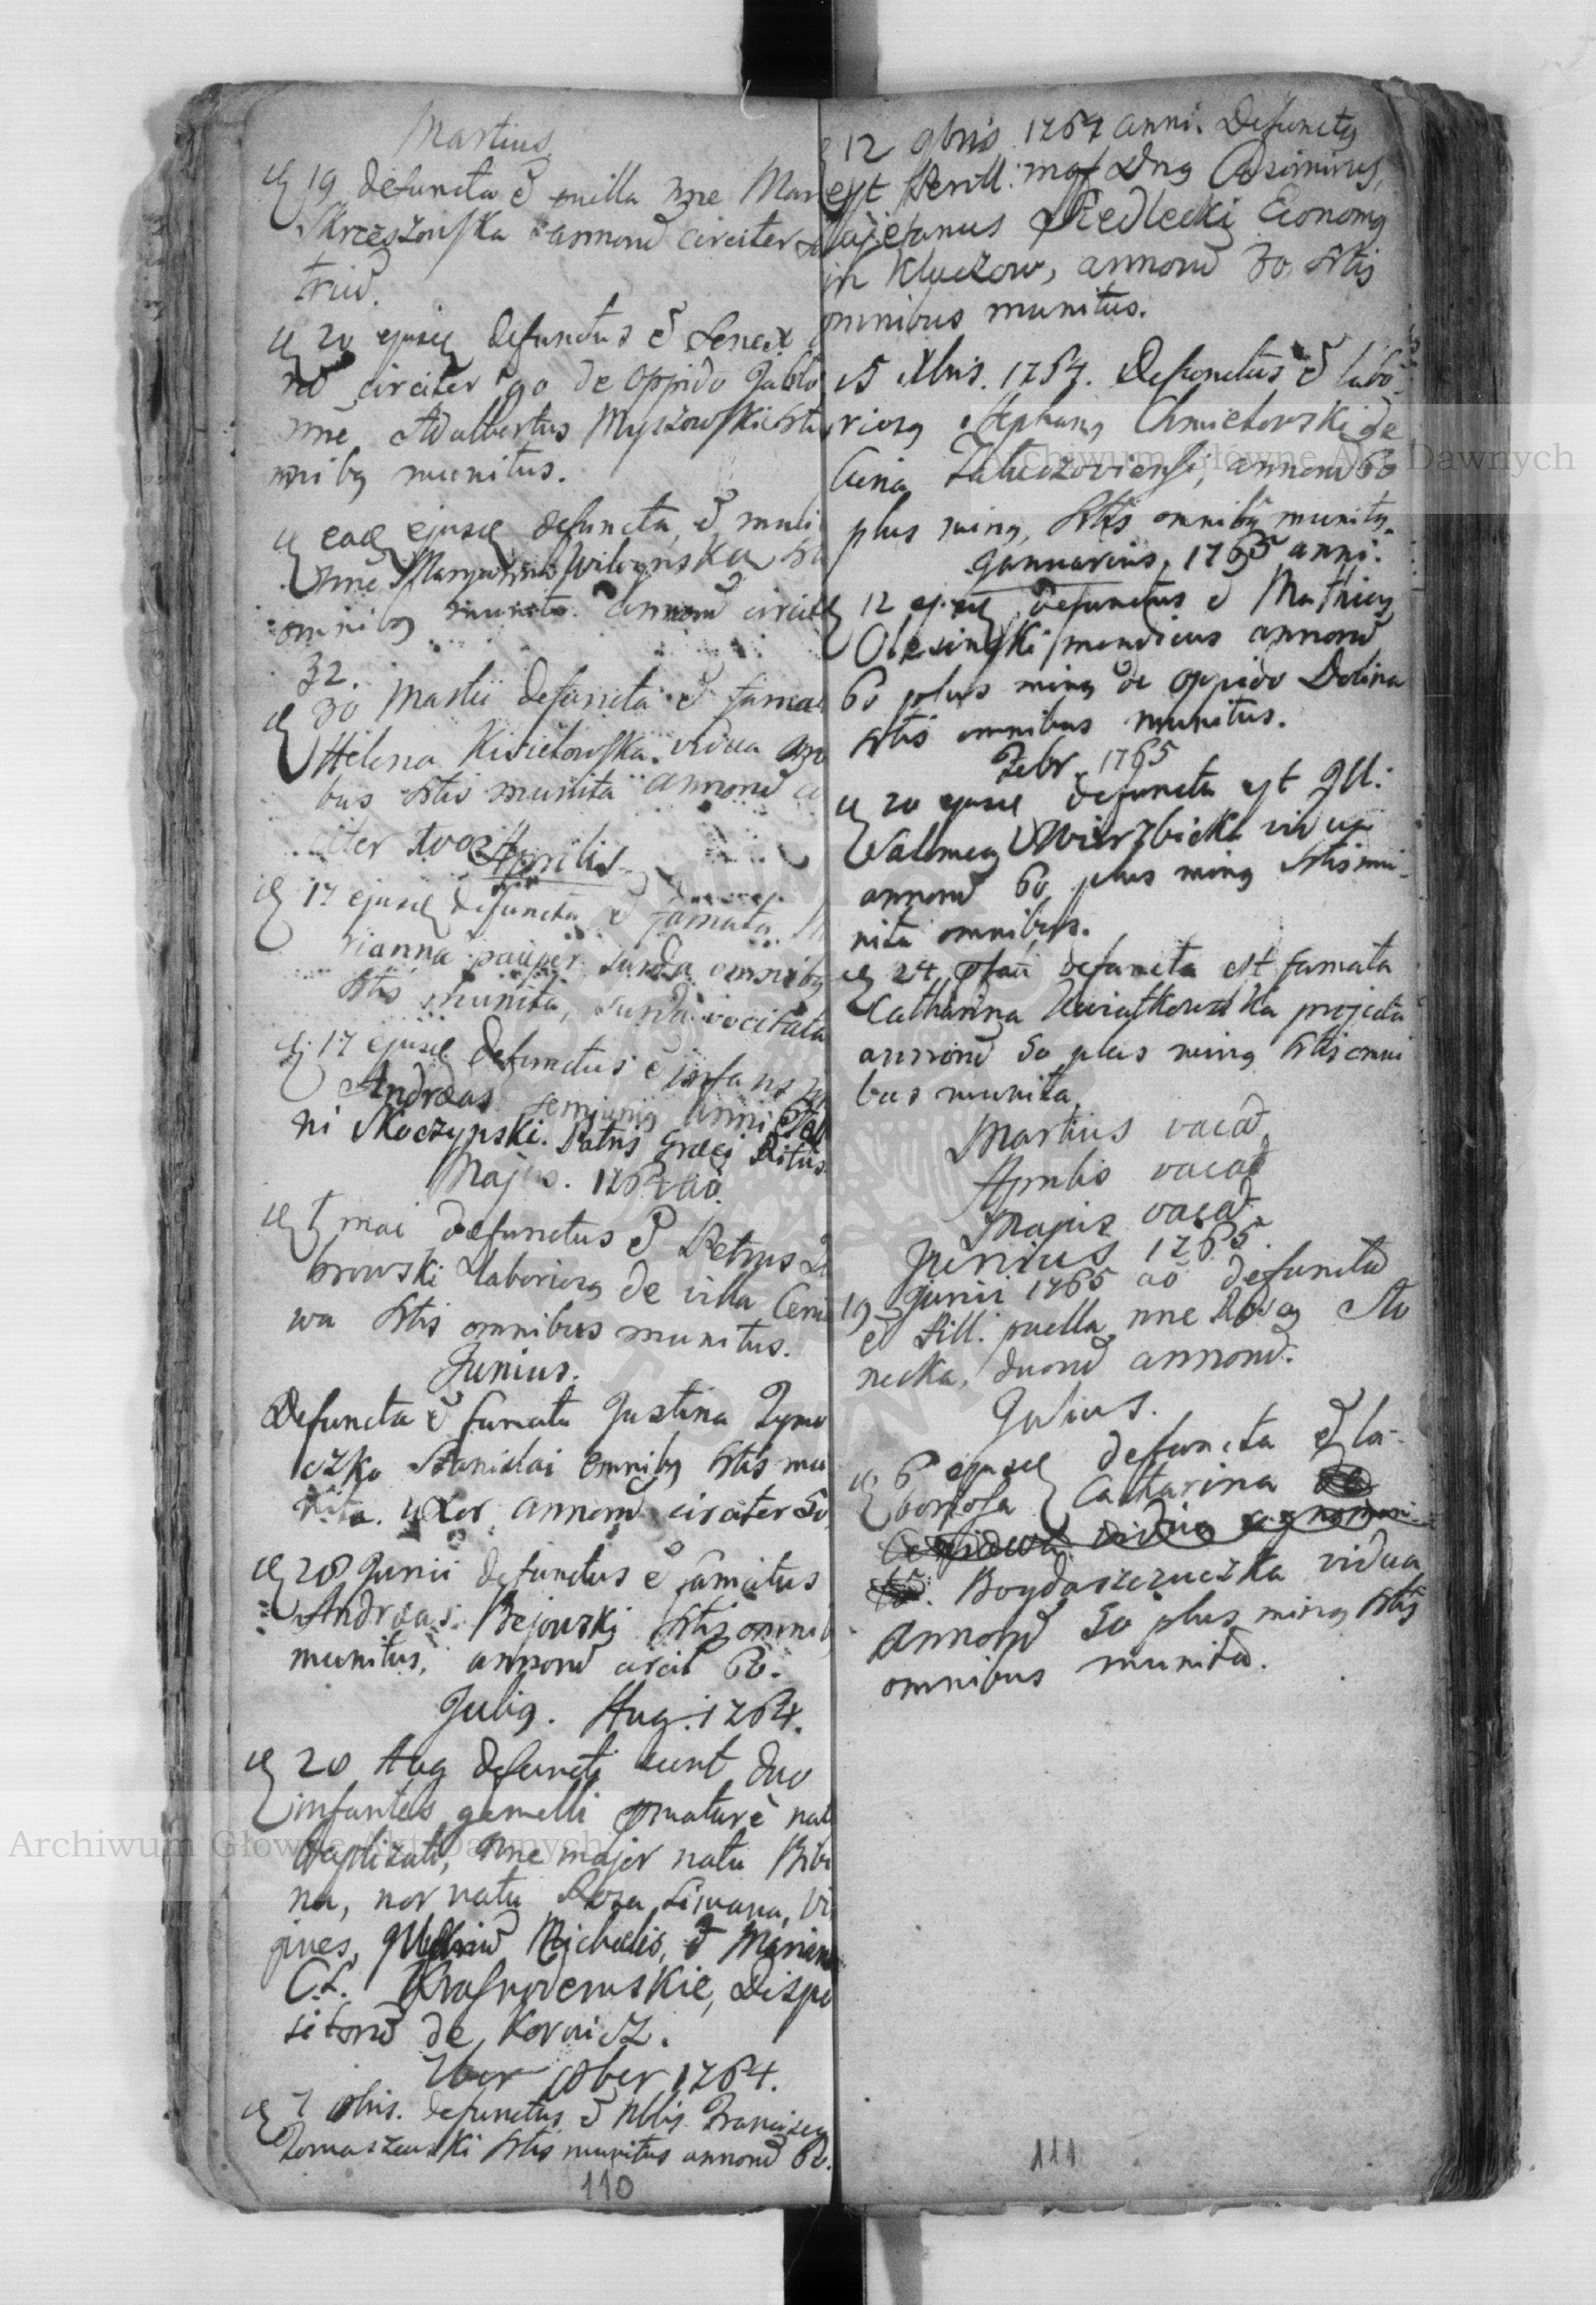 Martius
19 defuncta ẽ nne Mar
Skrzeszowska annorũ circiter
triũ.
20 ejusđ defunctus ẽ Senex
circiter 90 de oppido Jablo
nne Adalbertus Myszowski
munitus.
eađ ejusđ defuncta ẽ muli
nne
omnibq munita annorũ circit
32.
30 Martii defuncta ẽ famat
Helena Kisielowska vidua
bus Sttis munita annorũ
citer
Aprilis
17 ejusđ defuncta ẽ famata
rianna pauper surda omnibq
Sttis munita, surda vocitata
17 ejusđ defunctus ẽ infans
Andreas anni
ni Skoczynski. Patris Græci Ritus
Majus. 1764 aõ.
mai defunctus ẽ Petrus
browski Laboriosq de villa Ceni
wa Sttis omnibus munitus.
Junius.
Defuncta ẽ famata Justina Tymo
czko Stanislai omnibq Sttis mu
nita. uxor annorũ circiter 50
28 Junii defunctus ẽ famatus
Andreas Bejowski Sttis omnib
munitus, annorũ circit 60.
Juliq. Aug. 1764.
20 Aug defuncti sunt duo
infantes gemelli pmaturè nat
baptizati, nne major natu Bibi
na, nor natu Roza Limana, Vi
gines, Michaelis, ẽ Mariann
C.L. Krasnodemskie, Dispo
sitorũ de Kornicz.
7ber 8ber 1764.
7 8bris. defunctus ẽ Nblis Franciscq
Tomaszewski Sttis munitus annorũ 60.
110
12 9bris 1764 anni. Defunctq
est Perill: mgf Dnq Casimirus,
Cajetanus Siedlecki Economq
in Kluczow, annorũ 30 Sttis
omnibus munitus.
15 Xbris. 1764. Defunctus ẽ labo
riosq Stephanq Chmielowski de
Cina Zaluczoviensi, annorũ 60
plus minq, Sttis omnibq munitq.
Januarius, 1765 anni.
12 ejusđ, defunctus ẽ Mathiaq
Olesinski mendicus annorũ
60 plus minq de oppido Dolina
Sttis omnibus munitus.
Febr. 1765
20 ejusđ defuncta est Ill:
Salomea Wierzbicka vidua
annorũ 60 plus minq Sttis mu
nita omnibus.
24 defuncta est famata
Catharina Kwiatkowska projecta
annorũ 50 plus minq Sttis omni
bus munita.
Martius vacat,
Aprilis vacat
Majus vacat.
Junius 1765.
19 Junii 1765 aõ defuncta
ẽ Pill. puella nne Rosa Slo
necka, duorũ annorũ.
Julius.
6 ejusđ defuncta ẽ la-
boriosa Catharina
Bogdaszczuczka vidua
annorũ 50 plus minq Sttis
omnibus munita.
111
Archiwum Główne Akt Dawnych
Archiwum Główne Akt Dawnych